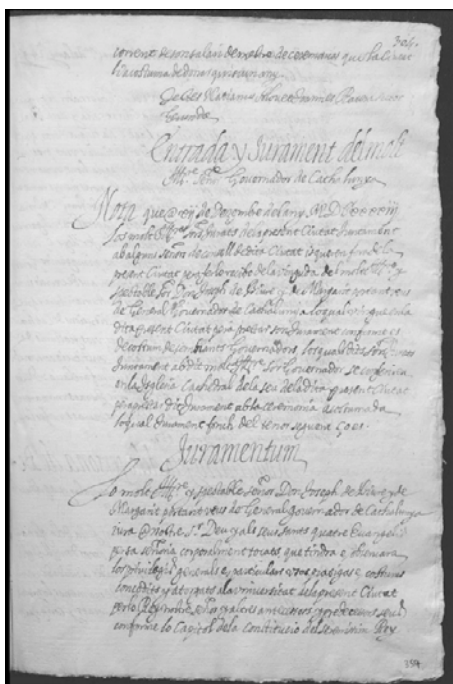 304.
corrent de son salari de mestre de ceremonias que la Ciutat
li acostuma de donar quiscun any
Entrada y Jurament del molt
Illre. Sor. Governador de Cathalunya
Nota que a de Dezembre del any M.D.C.
los molt Illres. Sors. Jurats de la present Ciutat juntament
ab alguns Senors de consell de dita Ciutat isqueren fora de la
present Ciutat per de la vinguda del molt Illre. y
spectable Sor. Don Joseph de y de Margarit portantveus
de General Governador de Cathalunya lo qual vingue en la
dita present Ciutat per a prestar son Jurament conforme es
de costum de semblants Governadors, los quals dits Sors. Jurats
juntament ab dit molt Illre. Sor. Governador se conferiren
en la Iglesia Cathedral de la seu de la dita present Ciutat
per a prestar dit Jurament ab la ceremonia acostumada
lo qual Jurament fonch del tenor seguent ço es.
Juramentum
Lo molt Illre. y spectable Senor Don Joseph de y de
Margarit portantveus de General governador de Cathalunya
jura a nostre Sr. Deu y als seus sants quatre Evangelis
per sa senoria corporalment tocats que tindra e observara
los privilegis generals e particulars usos praticas e costums
concedits y atorgats a la universitat de la present Ciutat
per lo Rey nostre senor y altres antecessors y predecessors seus
conforme lo Capitol de la Constitucio del serenissim Rey
354